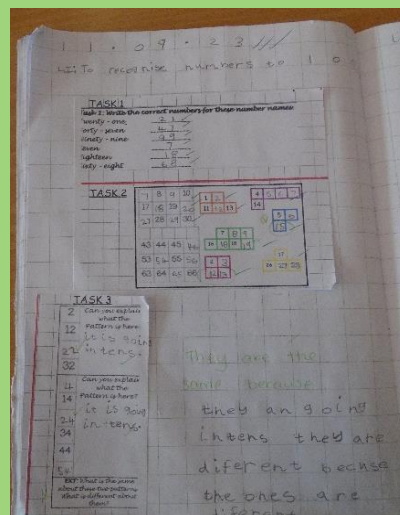 11.09.23
LI: To recognise numbers to 10
TASK 1
Task 1: Write the correct numbers for these number names
Twenty - one, 21
Forty - seven 47
Ninety - nine 99
Seven 7
Eighteen 18
Sixty - eight 68
TASK 2
7 8 9 10
17 18 19 20
27 28 29 30
43 44 45 46
53 54 55 56
63 64 65 66
1 2
11 12 13
4 5 6 7
14
7 8 9
16 18 19
17
TASK 3
2
12
22
32
Can you explain
what the
Pattern is here?
it is going
in tens.
4
14
24
34
44
54
Can you explain
what the
Pattern is here?
it is going
in tens.
EXT: What is the same
about these two patterns
What is different about
them?
They are the
same because
they an going
in tens they are
diferent becuse
the ones are
diferent